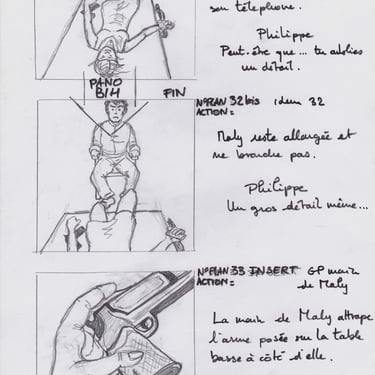 son téléphone.
Philippe
Peut-être que... tu oublies
un détail.
PANO
B/H
FIN
N°PLAN 32bis idem 32
ACTION=
Maly reste allongée et
ne branche pas.
Philippe
Un gros détail même...
N°PLAN 33 INSERT GP main
de Maly
ACTION=
La main de Maly attrape
l'arme posée sur la table
basse à côté d'elle.